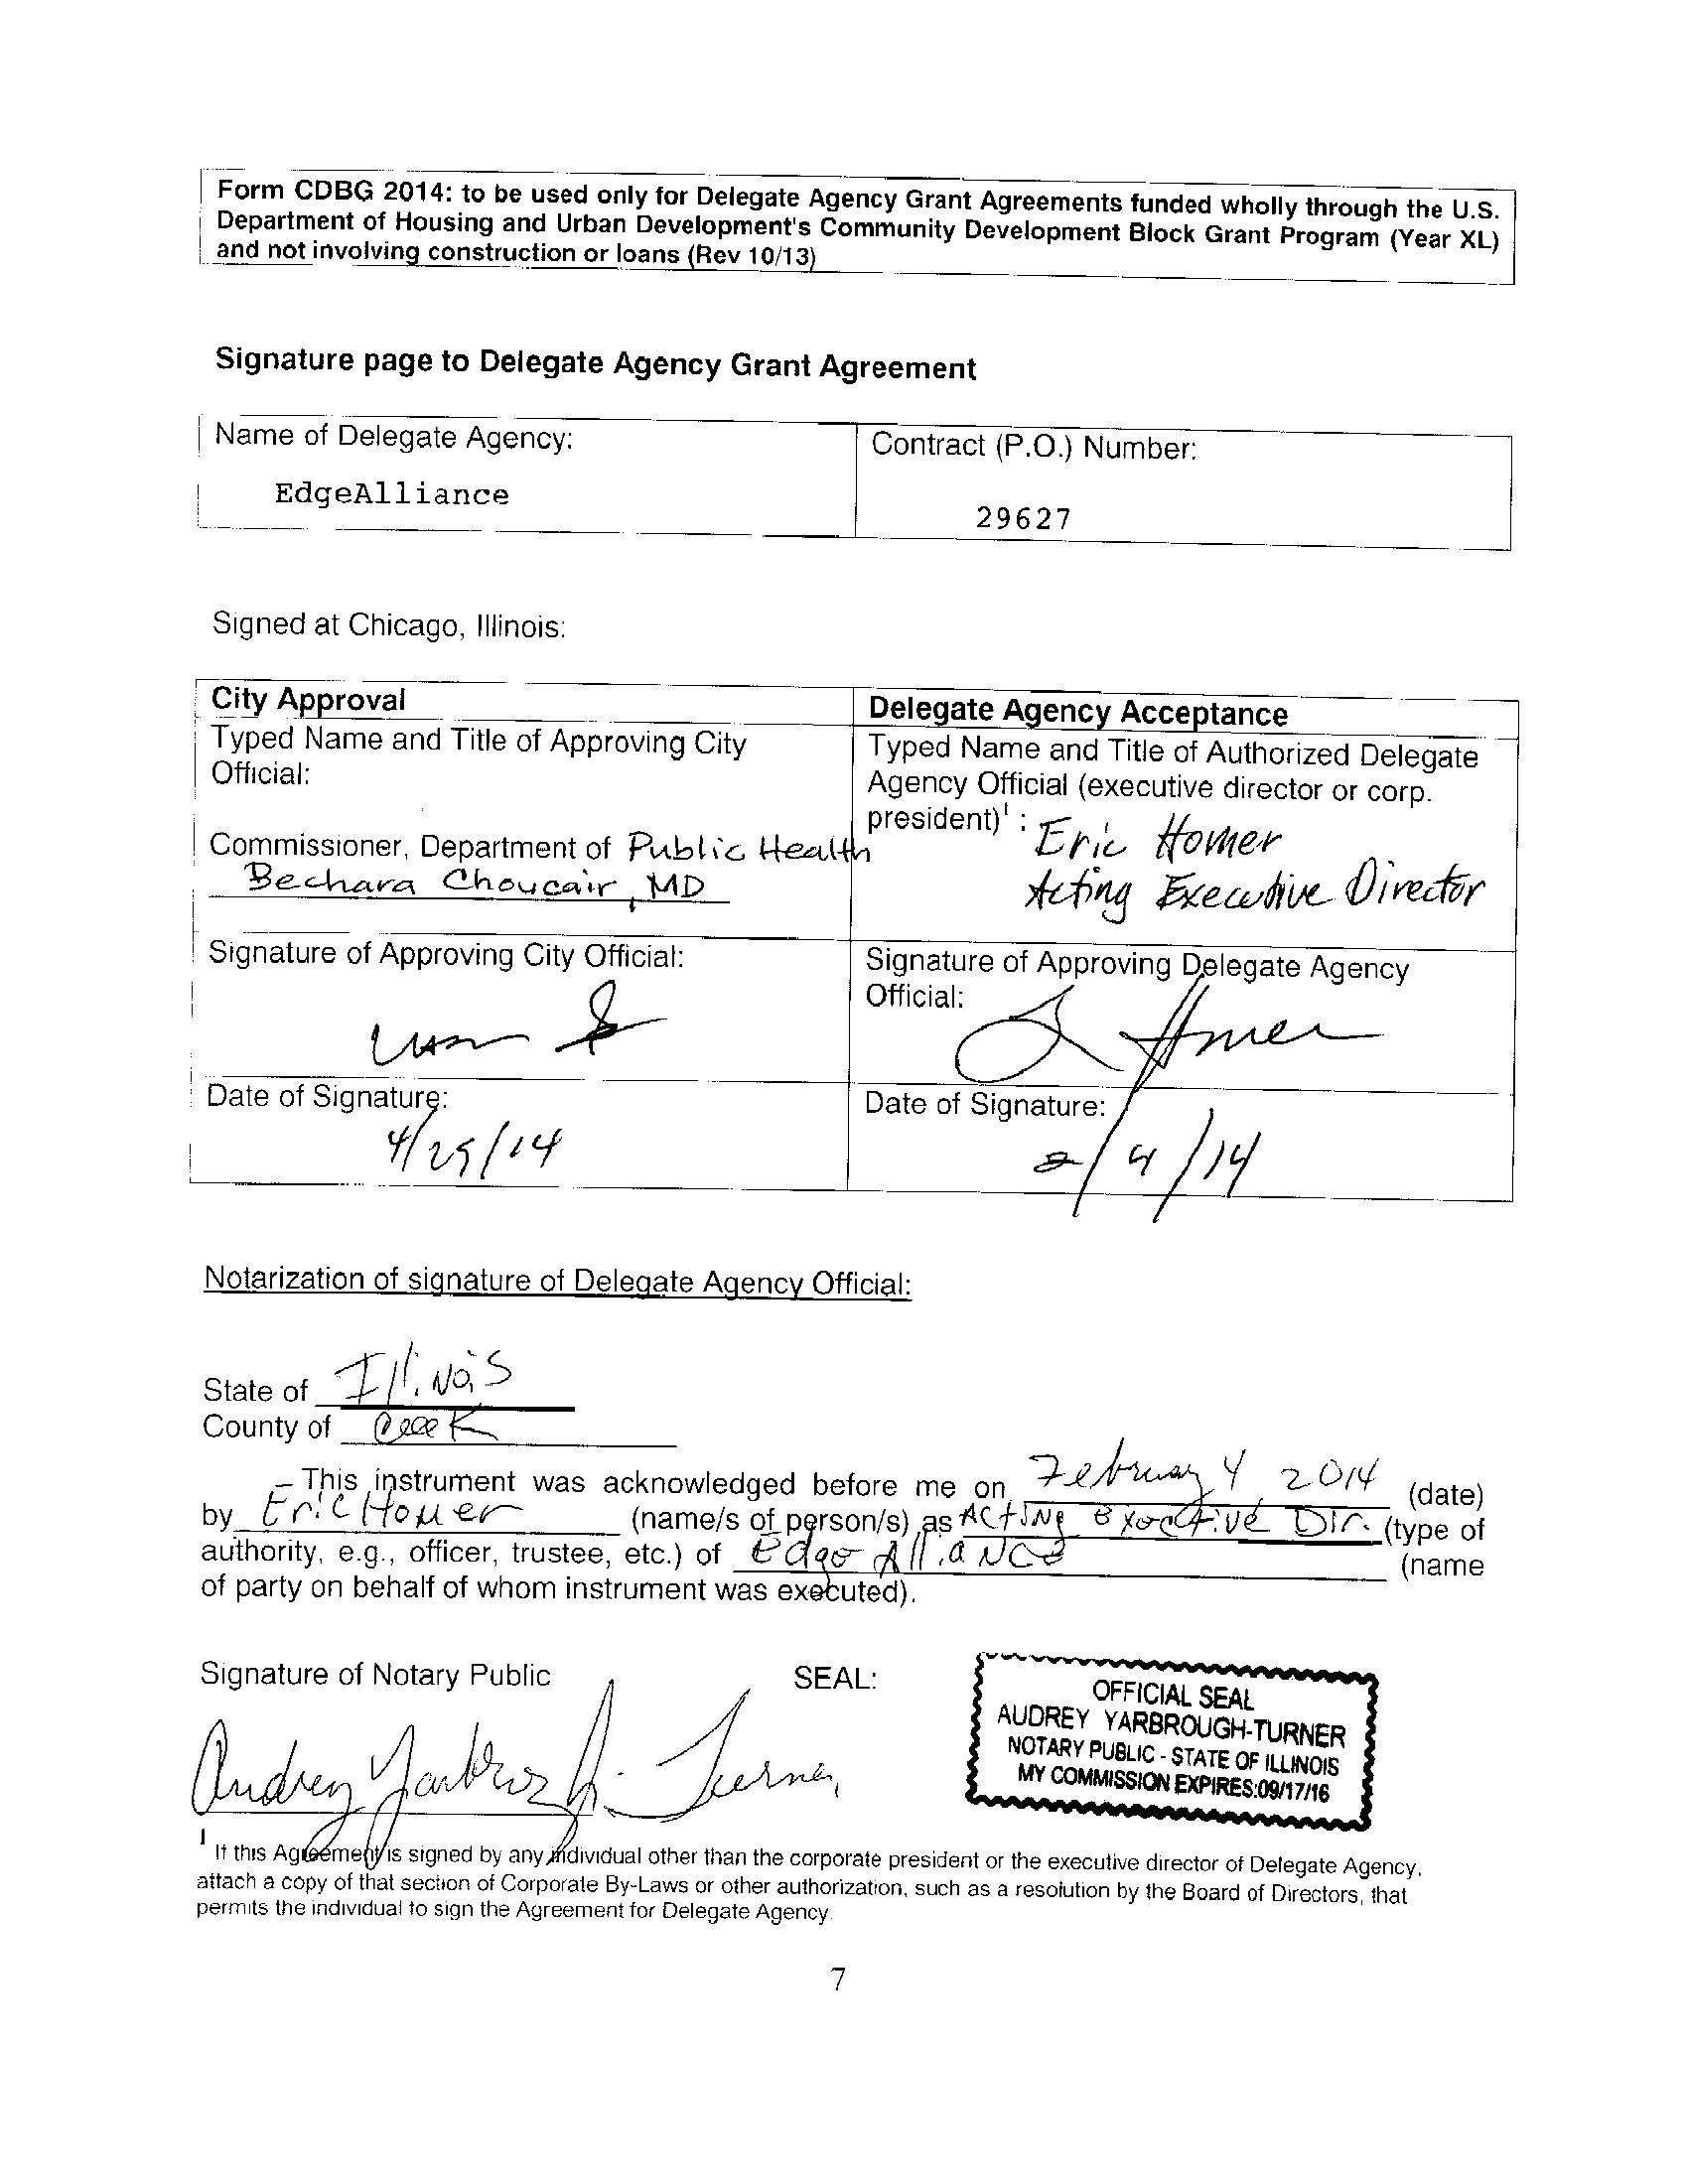 Form CDBG 2014: to be used only for Delegate Agency Grant Agreements funded wholly through the U.S.
Department of Housing and Urban Development's Community Development Block Grant Program (Year XL)
and not involving construction or loans (Rev 10/13)
Signature page to Delegate Agency Grant Agreement
Name of Delegate Agency:
EdgeAlliance
Contract (P.O.) Number:
29627
Signed at Chicago, Illinois:
City Approval
Typed Name and Title of Approving City
Official:
Commissioner, Department of Public Health
Bechara Choucair, MD
Delegate Agency Acceptance
Typed Name and Title of Authorized Delegate
Agency Official (executive director or corp.
president)1 : Eric Homer
Acting Executive Director
Signature of Approving City Official:
Signature of Approving Delegate Agency
Official:
Homer
Date of Signature:
4/29/14
Date of Signature:
2/4/14
Notarization of signature of Delegate Agency Official:
State of Illinois
County of Cook
This instrument was acknowledged before me on February 4 2014 (date)
by Eric Homer (name/s of person/s) as Acting Exoctive Dir. (type of
authority, e.g., officer, trustee, etc.) of Edge Alliance (name
of party on behalf of whom instrument was executed).
Signature of Notary Public
SEAL:
Audrey Yarbrough-Turner
OFFICIAL SEAL
AUDREY YARBROUGH-TURNER
NOTARY PUBLIC - STATE OF ILLINOIS
MY COMMISSION EXPIRES:09/17/16
1 If this Agreement is signed by any individual other than the corporate president or the executive director of Delegate Agency,
attach a copy of that section of Corporate By-Laws or other authorization, such as a resolution by the Board of Directors, that
permits the individual to sign the Agreement for Delegate Agency.
7